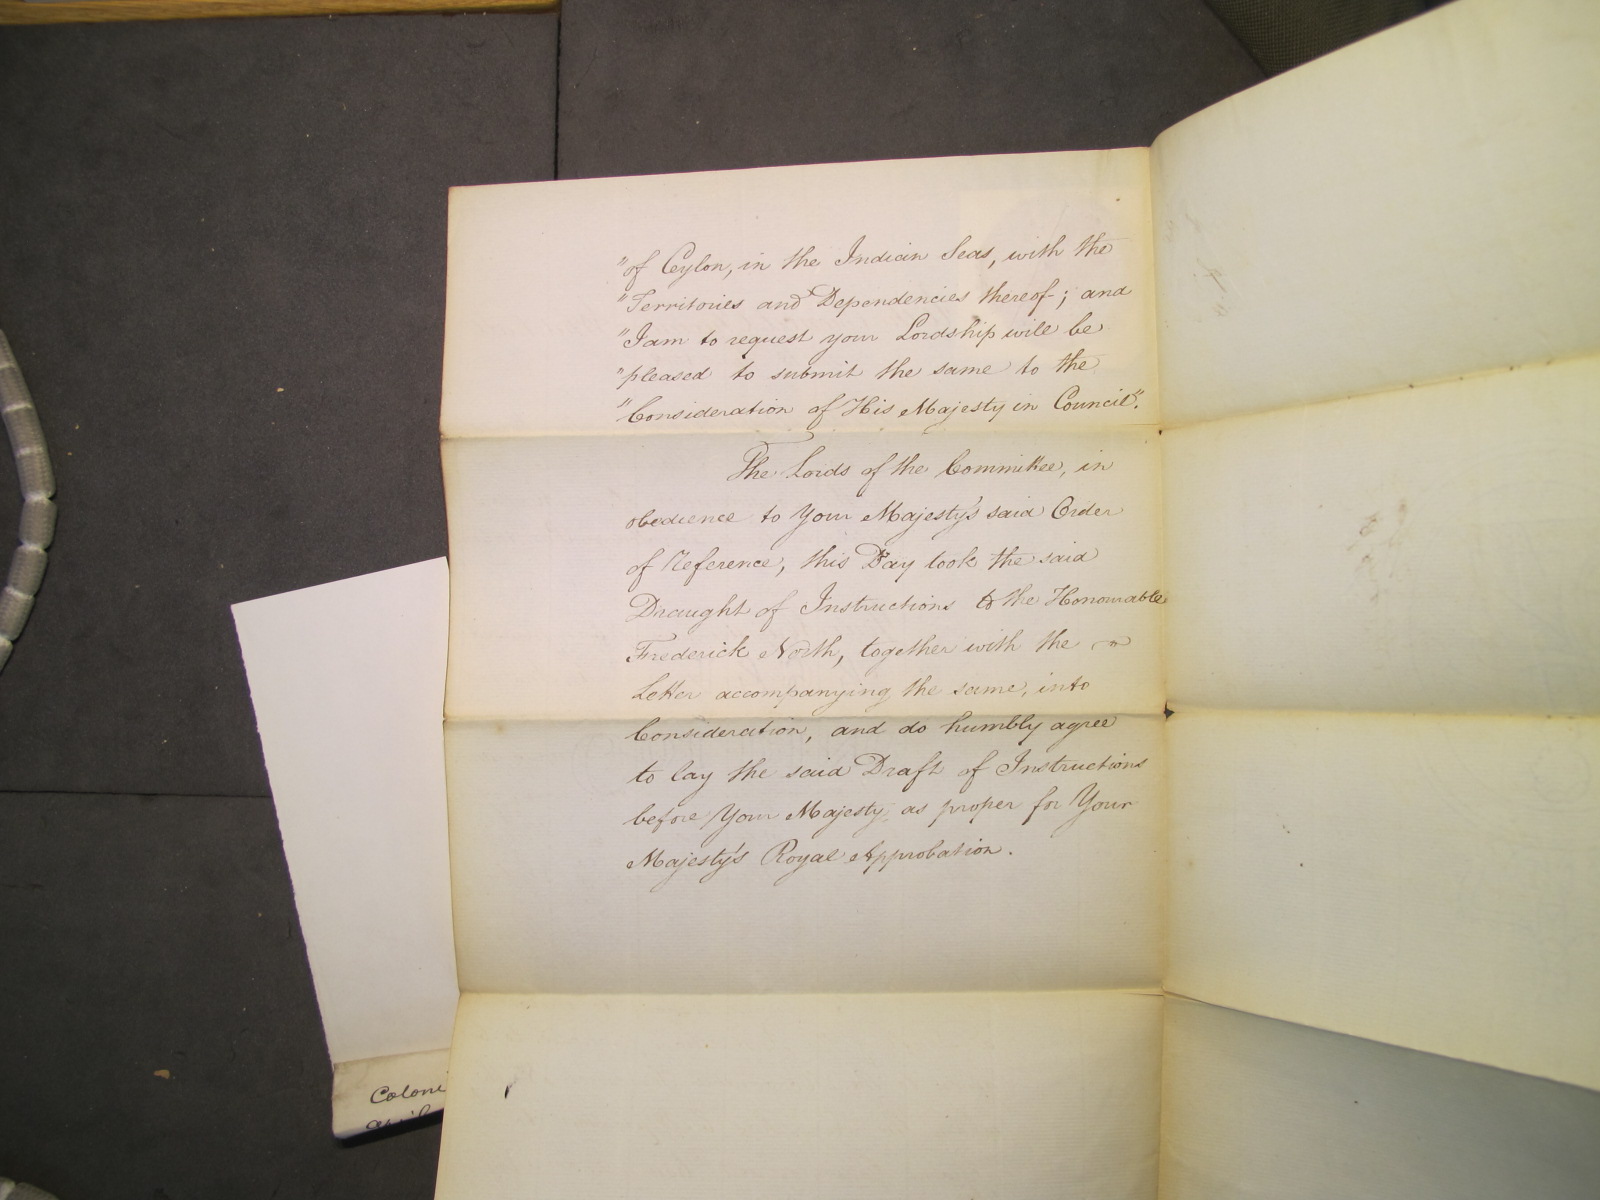 "of Ceylon, in the Indian Seas, with the
"Territories and Dependencies thereof; and
"I am to request your Lordship will be
"pleased to submit the same to the
"Consideration of His Majesty in Council".
The Lords of the Committee, in
obedience to Your Majesty's said Order
of Reference, this Day took the said
Draught of Instructions to the Honourable
Frederick North, together with the
Letter accompanying the same, into
Consideration, and do humbly agree
to lay the said Draft of Instructions
before Your Majesty, as proper for Your
Majesty's Royal Approbation.
Coloni